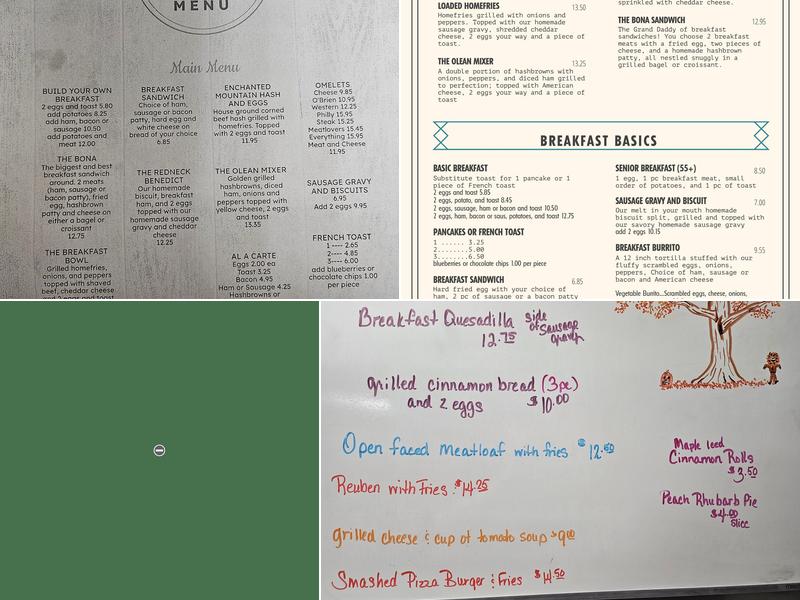 MENU
Main Menu
BUILD YOUR OWN
BREAKFAST
2 eggs and toast 5.80
add potatoes 8.25
add ham, bacon or
sausage 10.50
add potatoes and
meat 12.00
THE BONA
The biggest and best
breakfast sandwich
around. 2 meats
(ham, sausage or
bacon patty), fried
egg, hashbrown
patty and cheese on
either a bagel or
croissant
12.75
THE BREAKFAST
BOWL
Grilled homefries,
onions, and peppers
topped with shaved
beef, cheddar cheese
and 2 eggs and toast
BREAKFAST
SANDWICH
Choice of ham,
sausage or bacon
patty, hard egg and
white cheese on
bread of your choice
6.85
THE REDNECK
BENEDICT
Our homemade
biscuit, breakfast
ham, and 2 eggs
topped with our
homemade sausage
gravy and cheddar
cheese
12.25
ENCHANTED
MOUNTAIN HASH
AND EGGS
House ground corned
beef hash grilled with
homefries. Topped
with 2 eggs and toast
11.95
THE OLEAN MIXER
Golden grilled
hashbrowns, diced
ham, onions and
peppers topped with
yellow cheese, 2 eggs
and toast
13.35
AL A CARTE
Eggs 2.00 ea
Toast 3.25
Bacon 4.95
Ham or Sausage 4.25
Hashbrowns or
OMELETS
Cheese 9.85
O'Brien 10.95
Western 12.25
Philly 15.95
Steak 15.25
Meatlovers 15.45
Everything 15.95
Meat and Cheese
11.95
SAUSAGE GRAVY
AND BISCUITS
6.95
Add 2 eggs 9.95
FRENCH TOAST
1 ---- 2.65
2---- 4.85
3---- 6.00
add blueberries or
chocolate chips 1.00
per piece
LOADED HOMEFRIES 13.50
Homefries grilled with onions and
peppers. Topped with our homemade
sausage gravy, shredded cheddar
cheese, 2 eggs your way and a piece of
toast.
THE OLEAN MIXER 13.25
A double portion of hashbrowns with
onions, peppers, and diced ham grilled
to perfection; topped with American
cheese, 2 eggs your way and a piece of
toast
sprinkled with cheddar cheese.
THE BONA SANDWICH 12.95
The Grand Daddy of breakfast
sandwiches! You choose 2 breakfast
meats with a fried egg, two pieces of
cheese, and a homemade hashbrown
patty, all nestled snuggly in a
grilled bagel or croissant.
BREAKFAST BASICS
BASIC BREAKFAST
Substitute toast for 1 pancake or 1
piece of French toast
2 eggs and toast 5.85
2 eggs, potato, and toast 8.45
2 eggs, sausage, ham or bacon and toast 10.50
2 eggs, ham, bacon or saus, potatoes, and toast 12.75
PANCAKES OR FRENCH TOAST
1 ...... 3.25
2.......5.00
3.......6.50
blueberries or chocolate chips 1.00 per piece
BREAKFAST SANDWICH 6.85
Hard fried egg with your choice of
ham, 2 pc of sausage or a bacon patty
SENIOR BREAKFAST (55+) 8.50
1 egg, 1 pc breakfast meat, small
order of potatoes, and 1 pc of toast
SAUSAGE GRAVY AND BISCUIT 7.00
Our melt in your mouth homemade
biscuit split, grilled and topped with
our savory homemade sausage gravy
add 2 eggs 10.15
BREAKFAST BURRITO 9.55
A 12 inch tortilla stuffed with our
fluffy scrambled eggs, onions,
peppers, Choice of ham, sausage or
bacon and American cheese
Vegetable Burrito...Scrambled eggs, cheese, onions,
Breakfast Quesadilla side
of Sausage
gravy
12.75
grilled cinnamon bread (3pc)
and 2 eggs $10.00
Open faced meatloaf with fries $12.50
Reuben with Fries $14.25
grilled cheese & cup of tomato soup $9.00
Smashed Pizza Burger & Fries $14.50
Maple Iced
Cinnamon Rolls
$3.50
Peach Rhubarb Pie
$4.00
slice